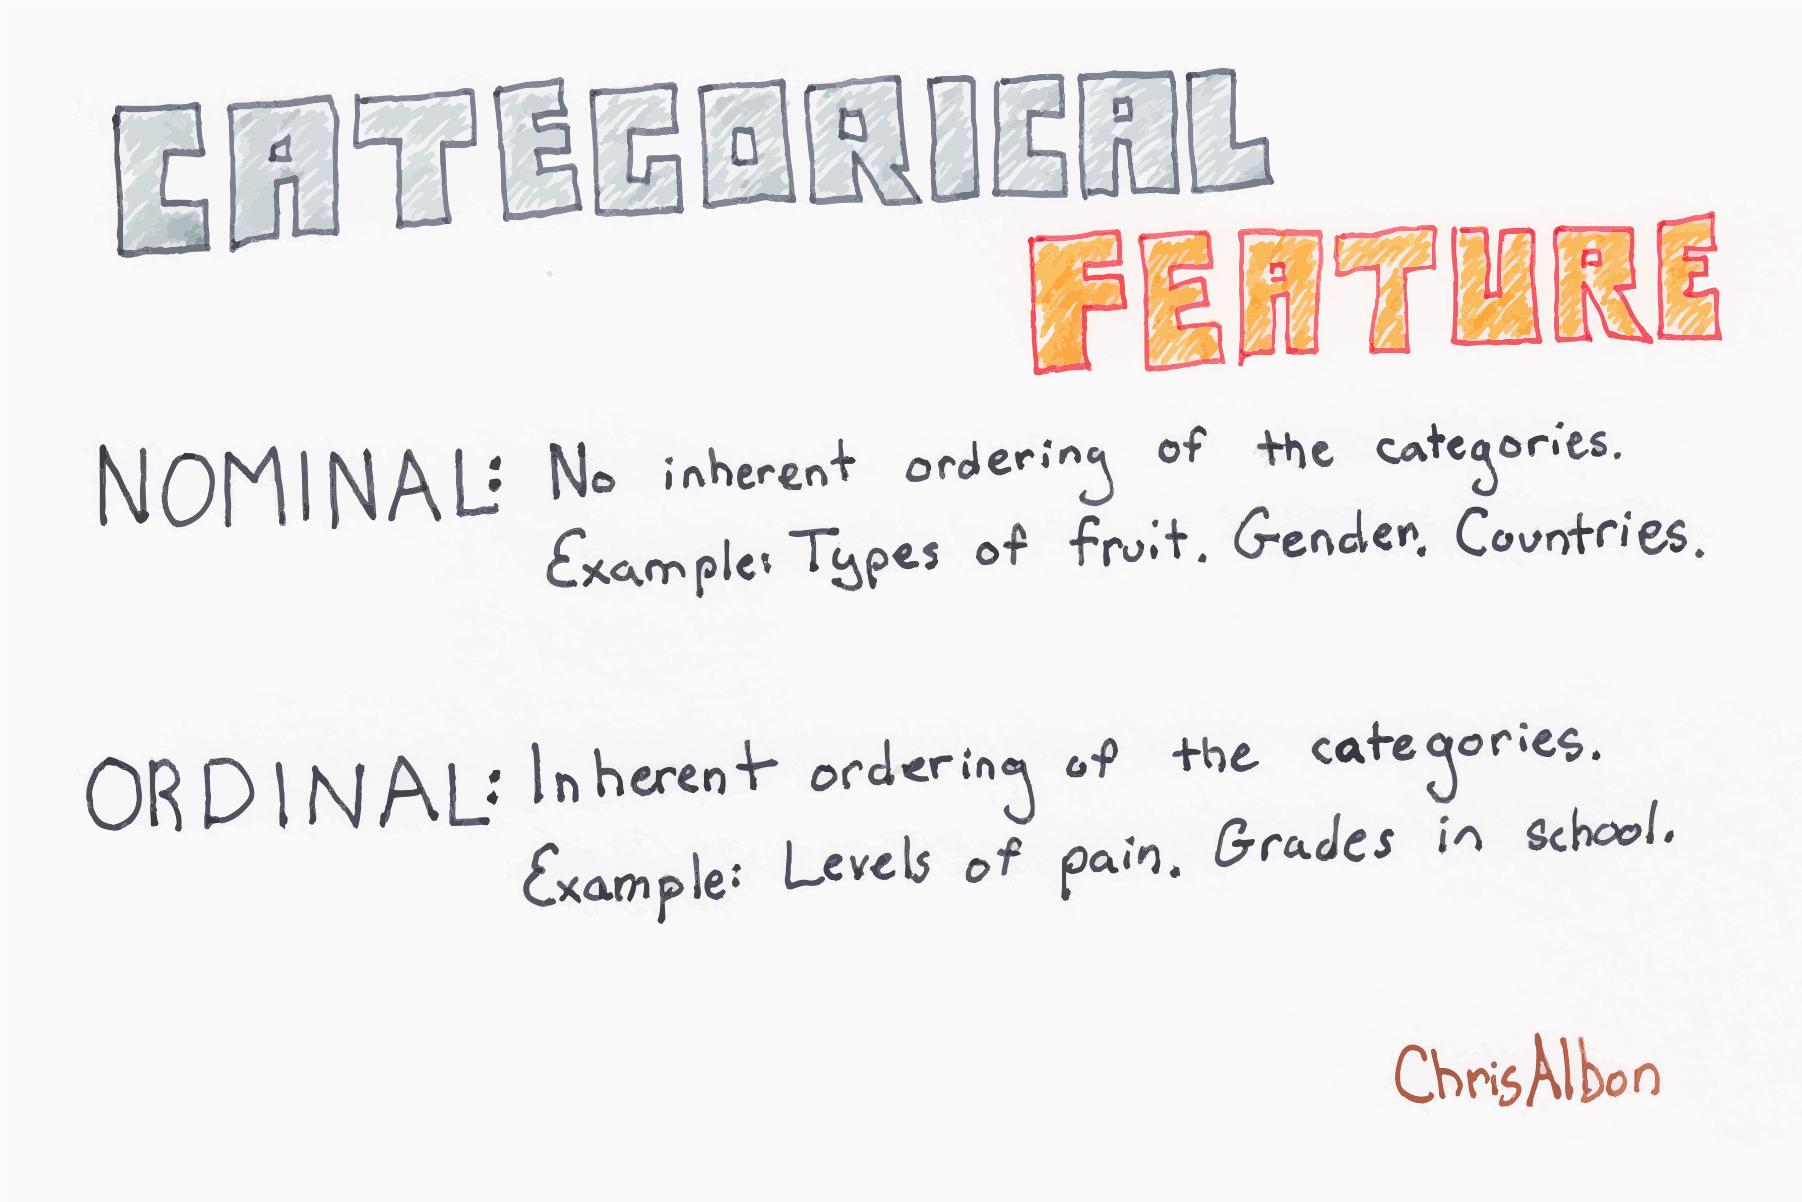 CATEGORICAL
FEATURE
NOMINAL: No inherent ordering of the categories.
Example: Types of fruit. Gender. Countries.
ORDINAL: Inherent ordering of the categories.
Example: Levels of pain. Grades in school.
ChrisAlbon